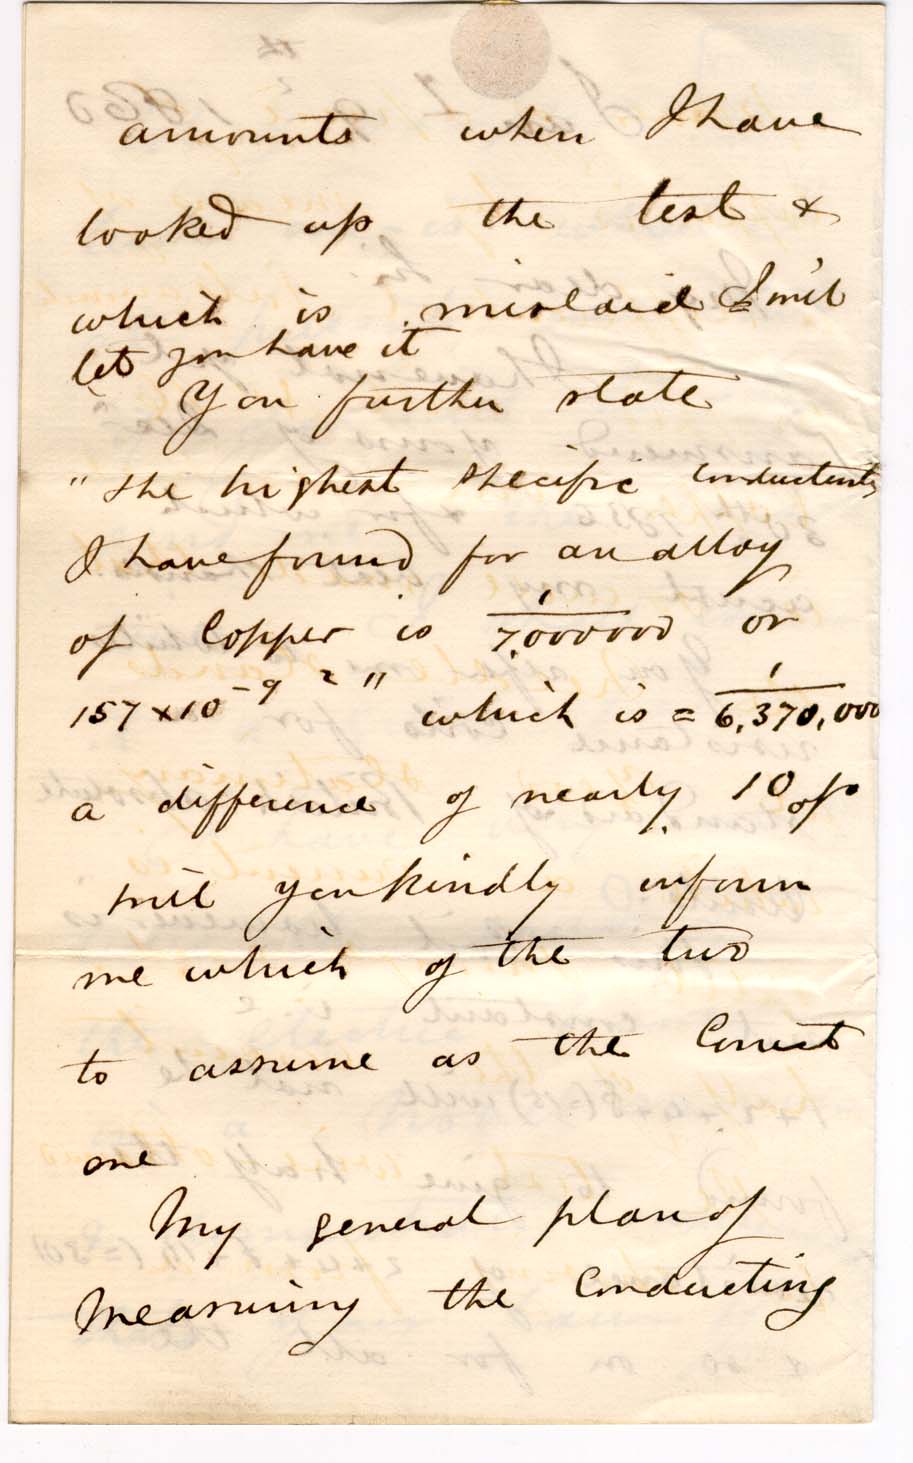 amounts when I have
looked up the test &
which is mislaid I will
let you have it
You further state
"the highest specific conductivity
I have found for an alloy
of Copper is 1/7,000000 or
157 x 10⁻⁹ " which is = 1/6,370,000
a difference of nearly 10 o/o
will you kindly inform
me which of the two
to assume as the Correct
one
My general plan of
Measuring the Conducting